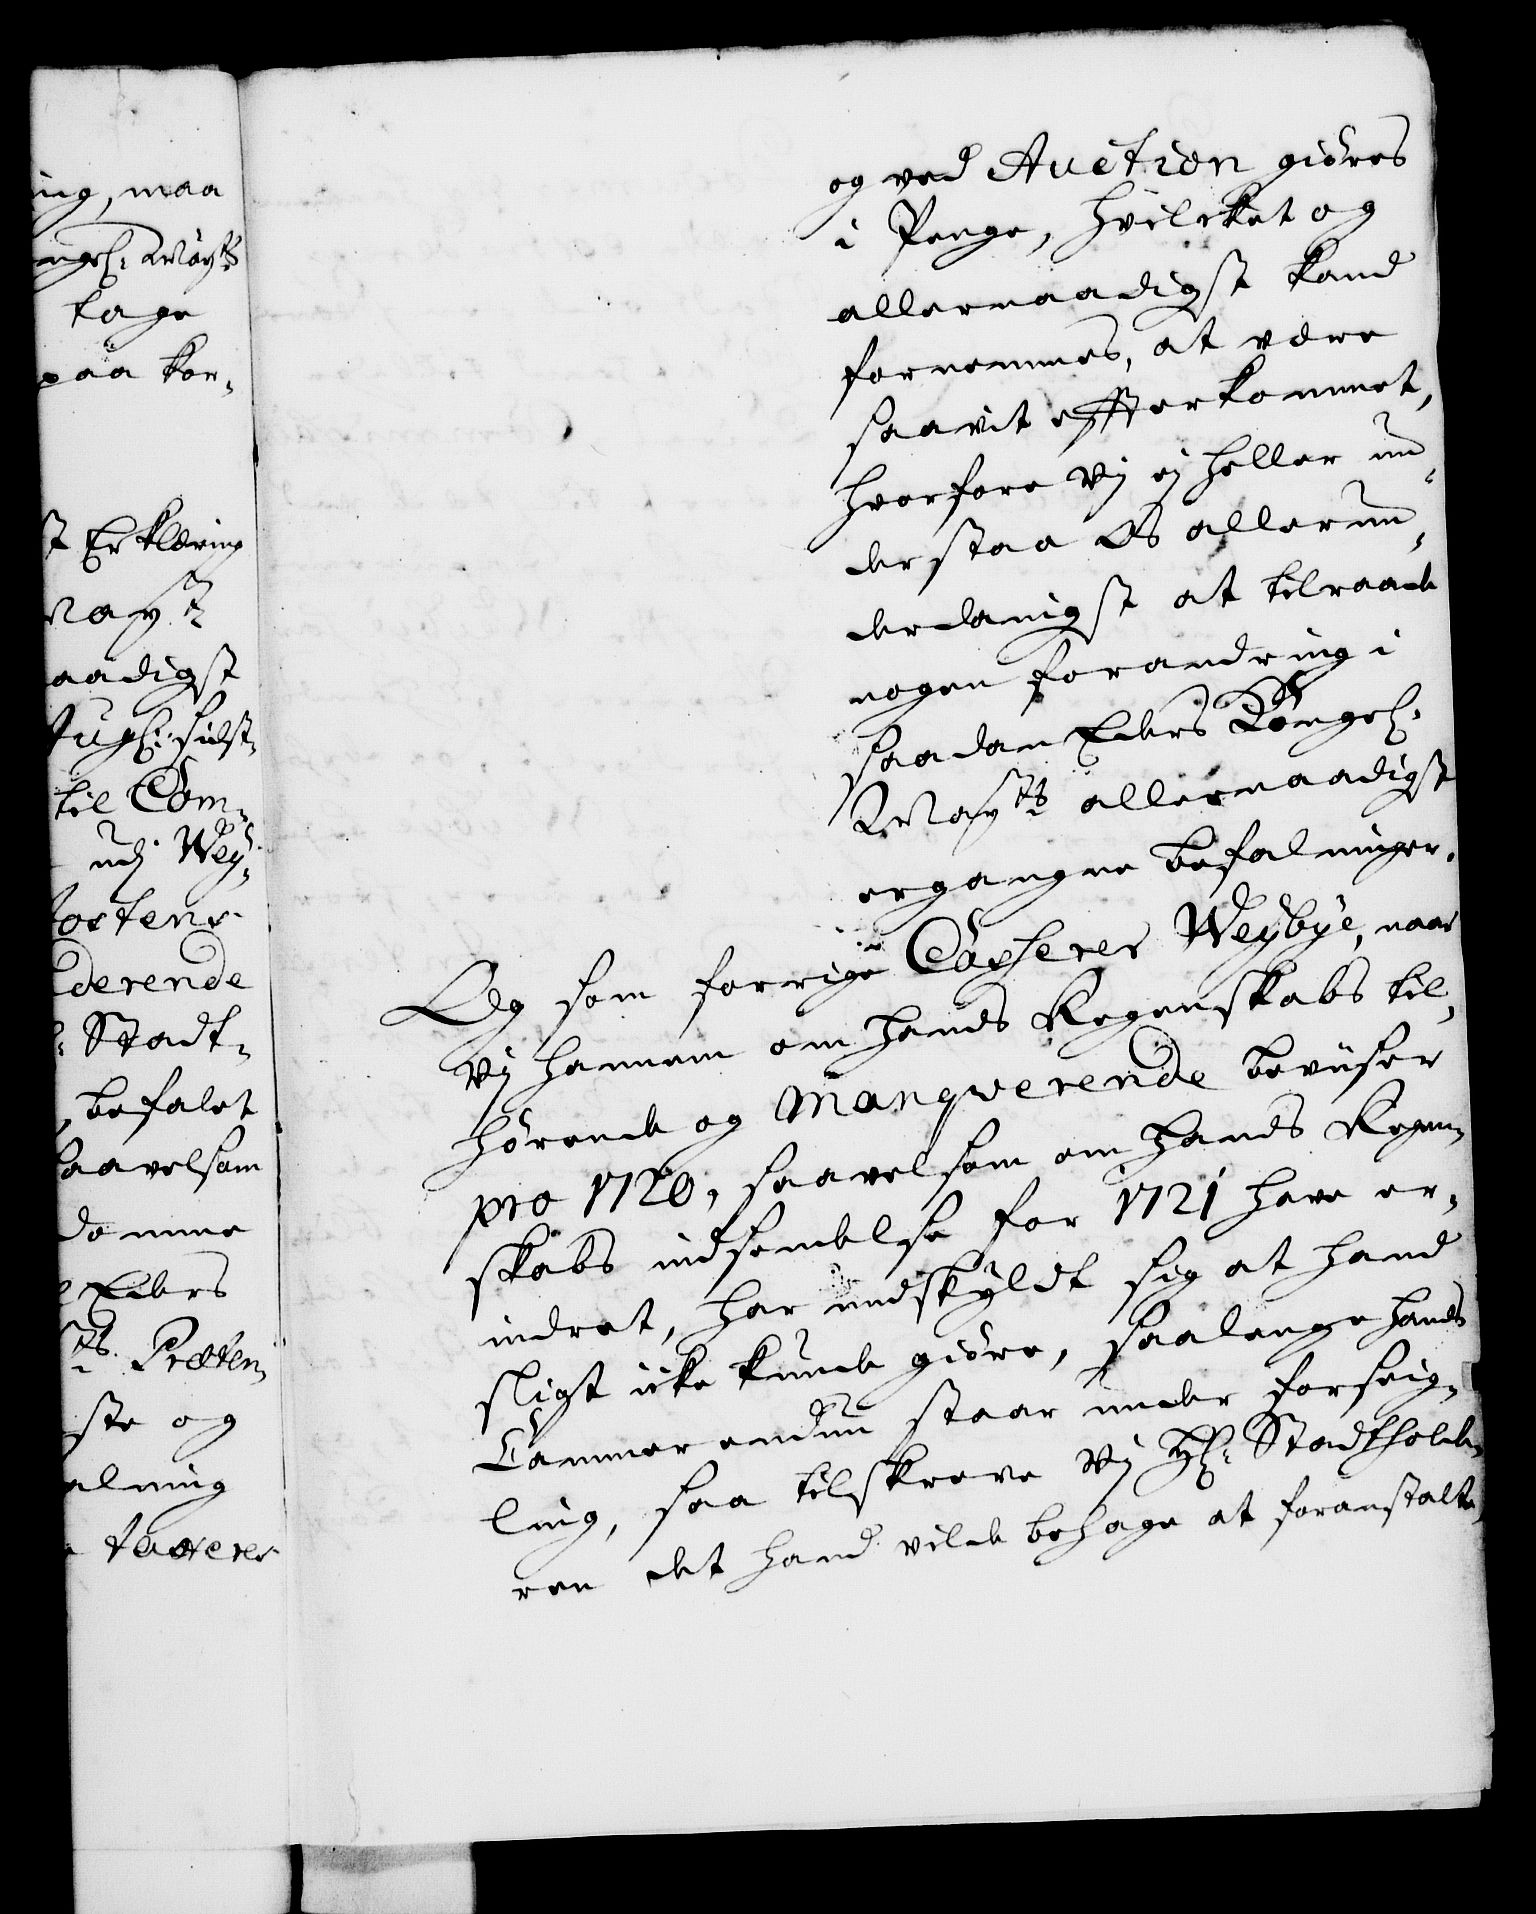 ing, maa
ngel: Mayts
tage
paa kor-
st Erklæring
Mayt
aadigst
Jugl: sidst-
til Com-
udj Wey-
ostens
derende
l: Stadt-
, befalet
saavelsom
domme
Eders
ts Præten-
ste og
alning
og ved Auction giöres
i Penge, hvilcket og
allernaadigst kand
fornemmes, at være
saavit effterkommet,
hvorfore Vj ej heller un-
derstaa Os allerun-
derdanigst at tilraade
nogen forandring i
saadan Eders Kongel:
Mayts allernaadigst
ergangne befalninger.
Og som forrige Casserer Weybye, naar
Vj hannem om hands Regenskabs til-
hörende og Manqverende beviiser
pro 1720, saavelsom om hands Regen-
skabs indsendelse for 1721 have er-
indret, har undskyldt sig at hand
sligt icke kunde giöre, saalenge hands
Cammer endnu staar under forseig-
ling, saa tilskreve Vj Hr: Stadtholde-
ren det hand vilde behage at foranstalte,